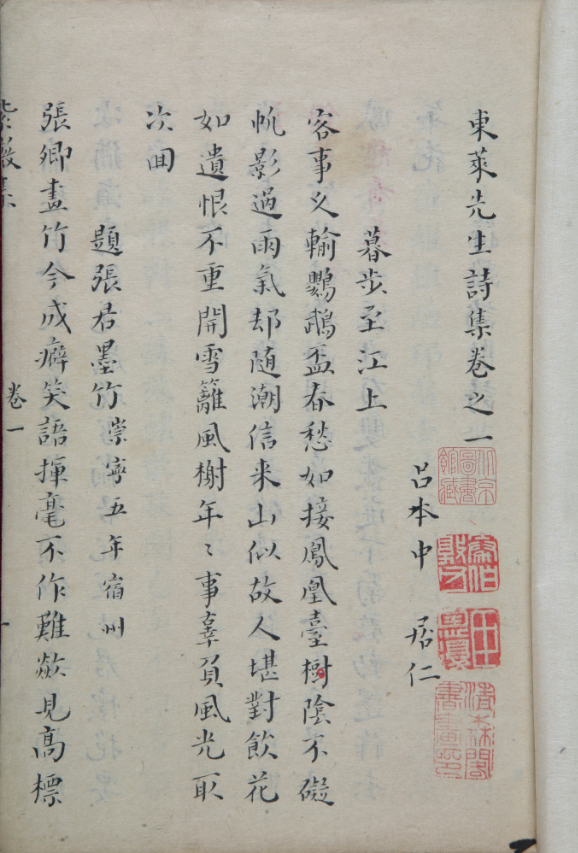 東萊先生詩集卷之一
呂本中 居仁
暮步至江上
客事又輸鸚鵡盃春愁如接鳳凰臺樹陰不礙
帆影過雨氣却随潮信来山似故人堪對飲花
如遺恨不重開雪籬風榭年〻事辜負風光取
次囬
題張君墨竹崇寧五年宿州
張卿畫竹今成癖笑語揮毫不作難歘見高標
紫薇集 卷一 一